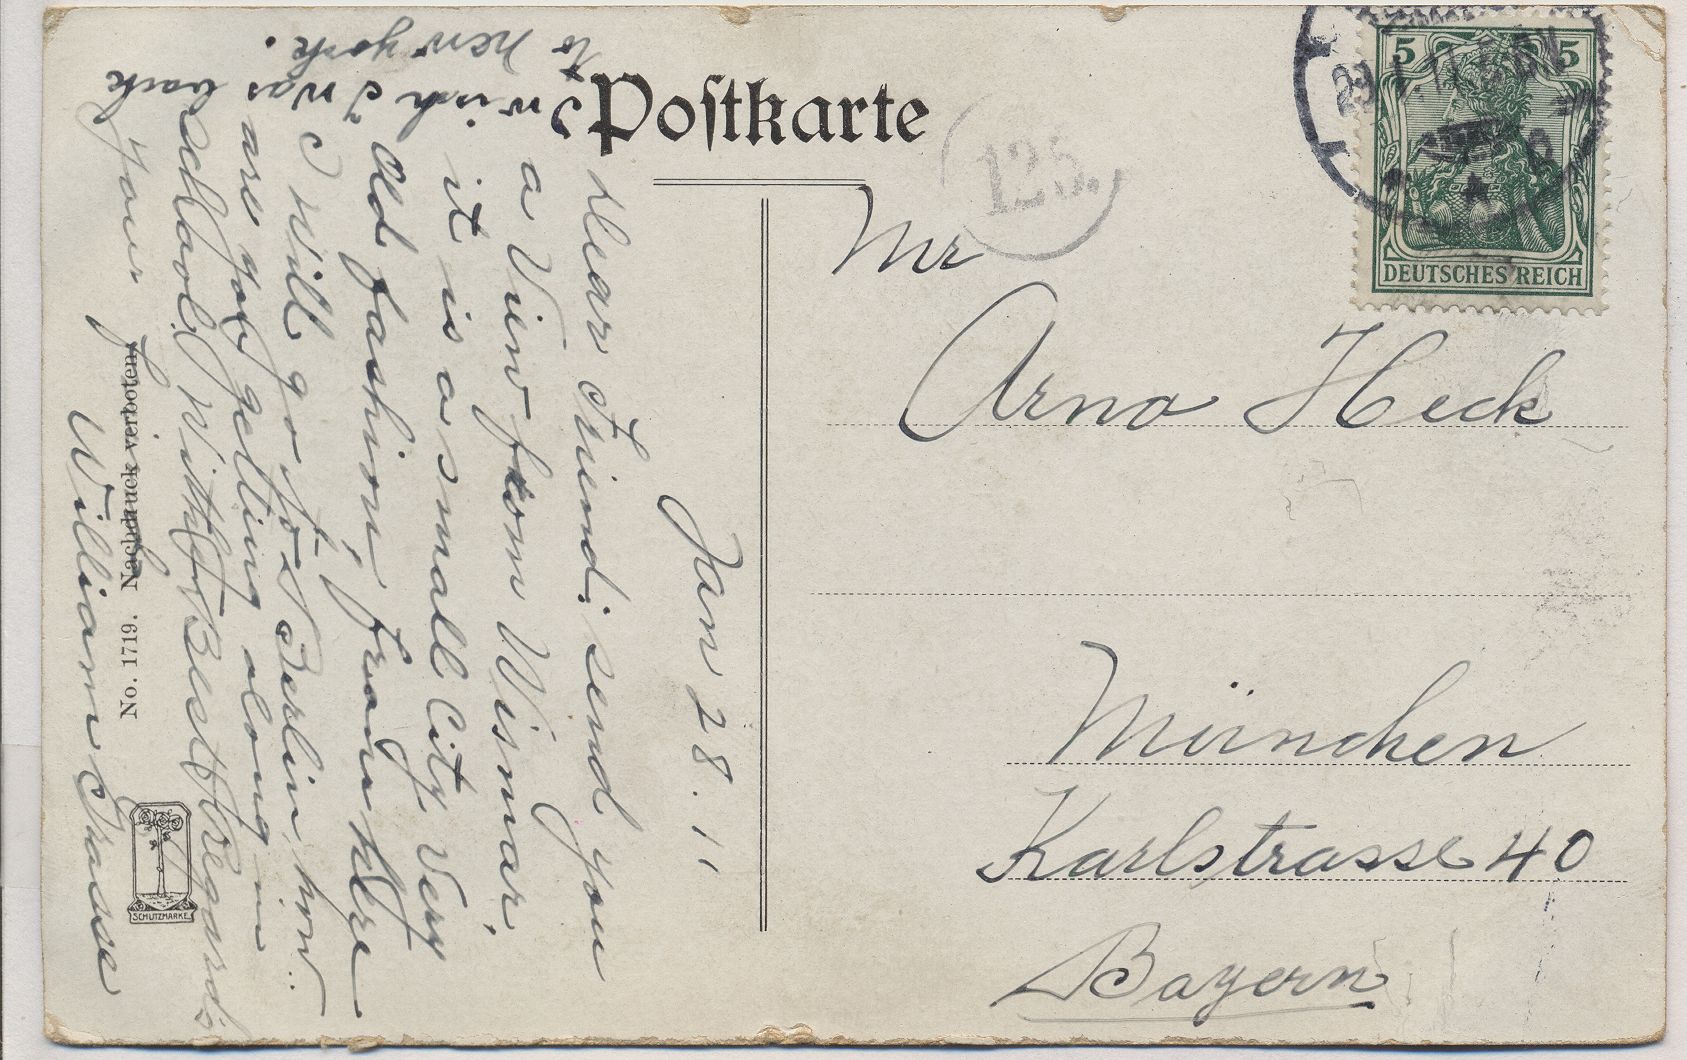 Postkarte
Jan 28. 11
Dear Friend; send you
a View from Wismar,
it is a small City, very
Old fashion, from here
I will go to Berlin, how
are you getting along in
school. With Best Regards
Your Friend
William Grasse
I wish I was back
to new york.
Mr
Arno Heck
München
Karlstrasse 40
Bayern
5 5
DEUTSCHES REICH
29.1.11
125.
No. 1719. Nachdruck verboten.
SCHUTZMARKE